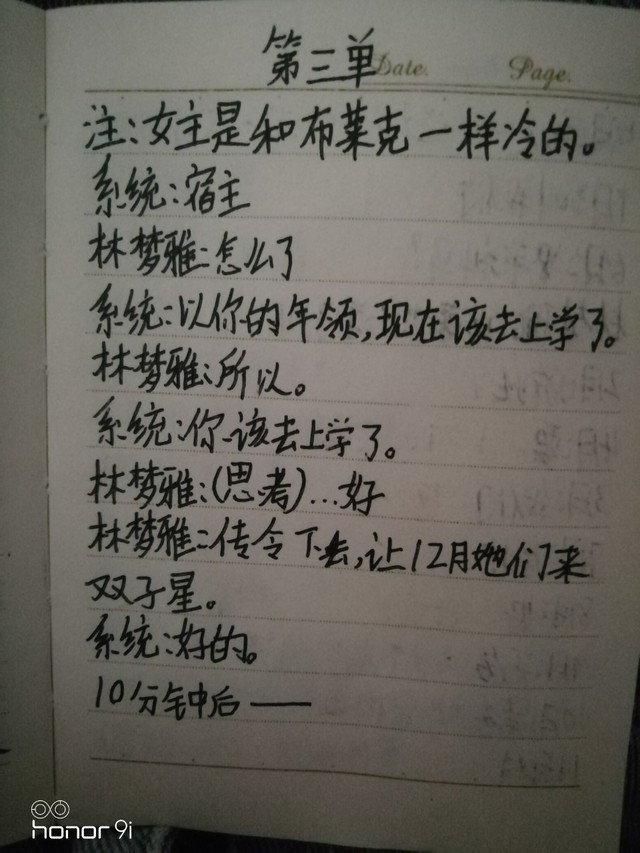 第三单
Date. Page.
注:女主是和布莱克一样冷的。
系统:宿主
林梦雅:怎么了
系统:以你的年领,现在该去上学了。
林梦雅:所以。
系统:你该去上学了。
林梦雅:(思考)…好
林梦雅:传令下去,让12月她们来
双子星。
系统:好的。
10分钟后——
honor 9i